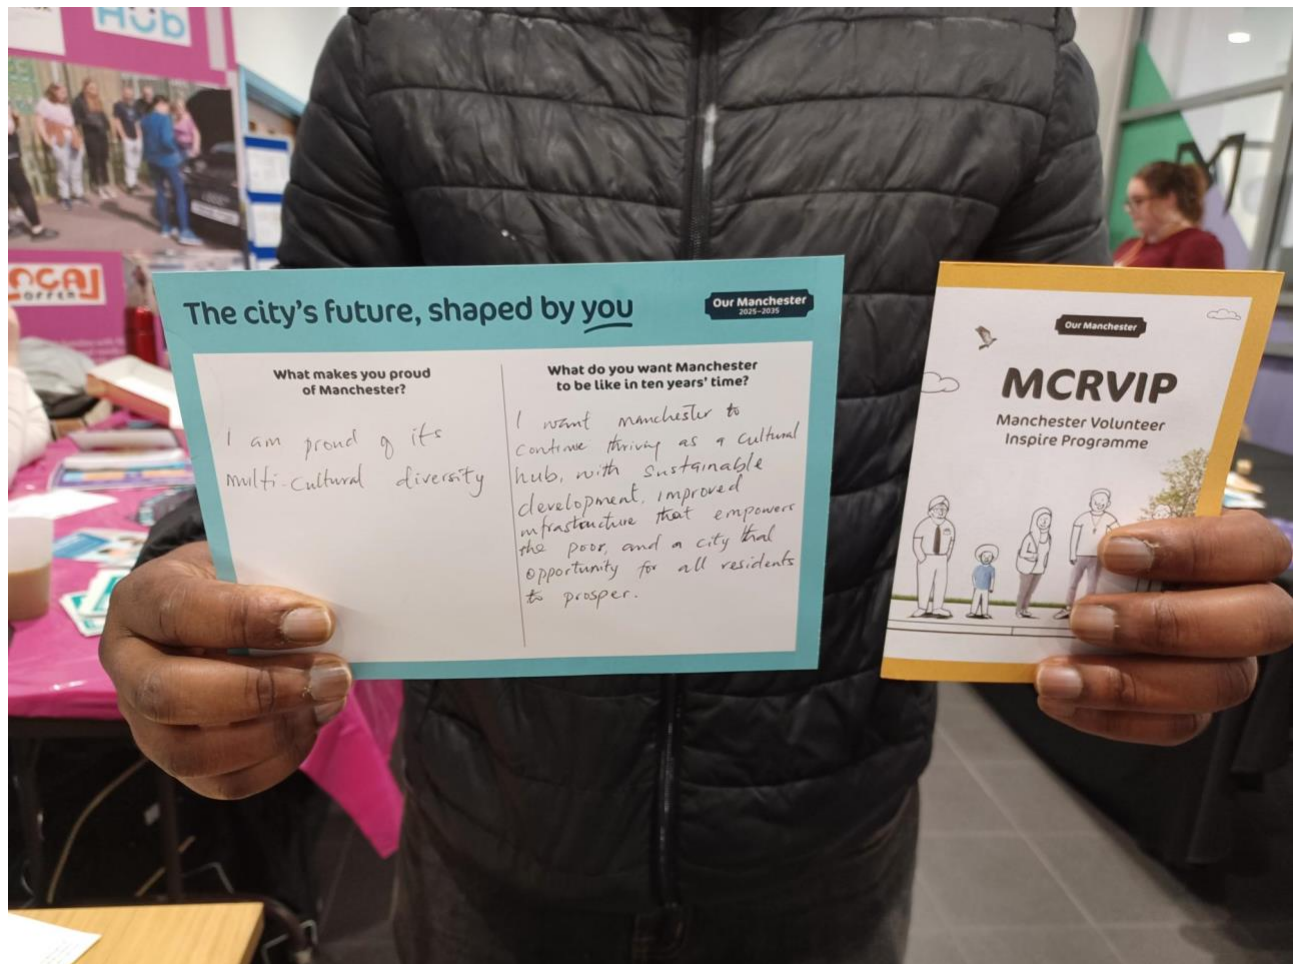 Hub
LOCAL
OFFER
The city's future, shaped by you
Our Manchester
2025–2035
What makes you proud
of Manchester?
I am proud of its
multi-cultural diversity
What do you want Manchester
to be like in ten years' time?
I want manchester to
continue thriving as a cultural
hub, with sustainable
development, improved
infrastructure that empowers
the poor, and a city that
opportunity for all residents
to prosper.
Our Manchester
MCRVIP
Manchester Volunteer
Inspire Programme
M